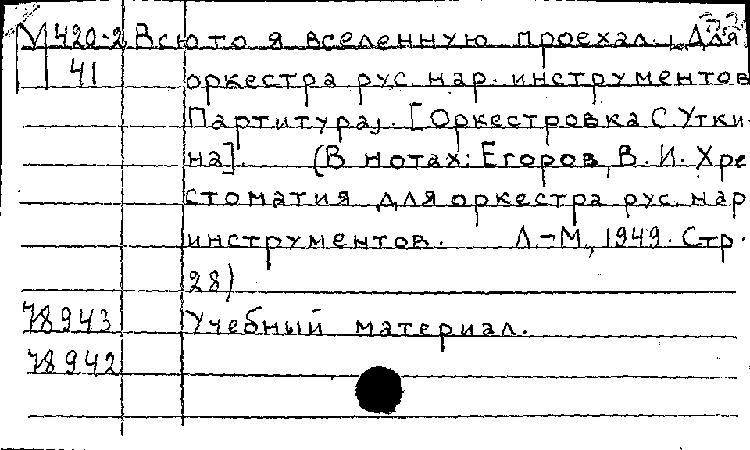 М 420-2 Всю то я вселенную проехал. Для
41 оркестра рус. нар. инструментов
Партитура. [Оркестровка С. Утки-
на]. (В нотах: Егоров, В. И. Хре
стоматия для оркестра рус. нар
инструментов. Л-М, 1949. Стр.
28)
78943 Учебный материал.
78942